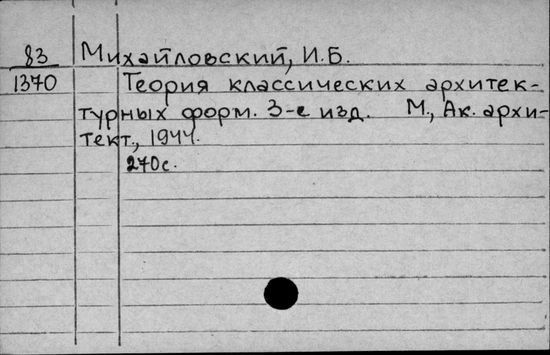 83 Михайловский, И.Б.
1370 Теория классических архитек-
турных форм. 3-е изд. М., Ак. архи-
тект., 1944.
270с.